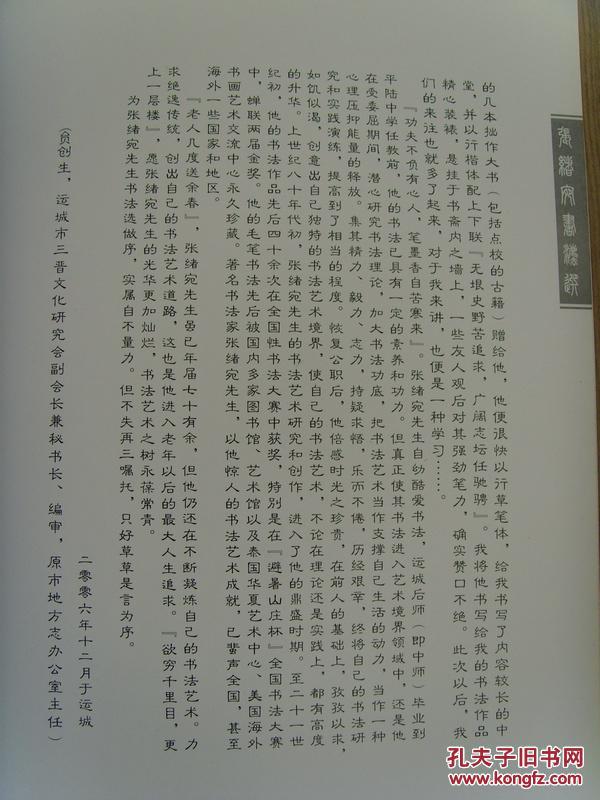 張緒宛書法選
的几本拙作大书（包括点校的古籍）赠给他，他便很快以行草笔体，给我书写了内容较长的中
堂，并以行楷体配上下联『无垠史野苦追求，广阔志坛任驰骋』。我将他书写给我的书法作品
精心装裱，悬挂于书斋内之墙上，一些友人观后对其强劲笔力，确实赞口不绝。此次以后，我
们的来往也就多了起来，对于我来讲，也便是一种学习……。
『功夫不负有心人，笔墨香自苦寒来』。张绪宛先生自幼酷爱书法，运城后师（即中师）毕业到
平陆中学任教前，他的书法已具有一定的素养和功力。但真正使其书法进入艺术境界领域中，还是他
在受委屈期间，潜心研究书法理论，加大书法功底，把书法艺术当作支撑自己生活的动力，当作一种
心理压抑能量的释放。集其精力、毅力、志力，持疑求悟，乐而不倦，历经艰辛，终将自己的书法研
究和实践演练，提高到了相当的程度。恢复公职后，他倍感时光之珍贵，在前人的基础上，孜孜以求，
如饥似渴，创意出自己独特的书法艺术境界，使自己的书法艺术，不论在理论还是实践上，都有高度
的升华。上世纪八十年代初，张绪宛先生的书法艺术研究和创作，进入了他的鼎盛时期。至二十一世
纪初，他的书法作品先后四十余次在全国性书法大赛中获奖，特别是在『避暑山庄杯』全国书法大赛
中，蝉联两届金奖。他的毛笔书法先后被国内多家图书馆、艺术馆以及泰国华夏艺术中心、美国海外
书画艺术交流中心永久珍藏。著名书法家张绪宛先生，以他惊人的书法艺术成就，已蜚声全国，甚至
海外一些国家和地区。
『老人几度送余春』，张绪宛先生虽已年届七十有余，但他仍还在不断凝炼自己的书法艺术。力
求绝逸传统，创出自己的书法艺术道路，这也是他进入老年以后的最大人生追求。『欲穷千里目，更
上一层楼』，愿张绪宛先生的光华更加灿烂，书法艺术之树永葆常青。
为张绪宛先生书法选做序，实属自不量力。但不失再三嘱托，只好草草是言为序。
二零零六年十二月于运城
（贠创生，运城市三晋文化研究会副会长兼秘书长、编审，原市地方志办公室主任）
孔夫子旧书网
www.kongfz.com